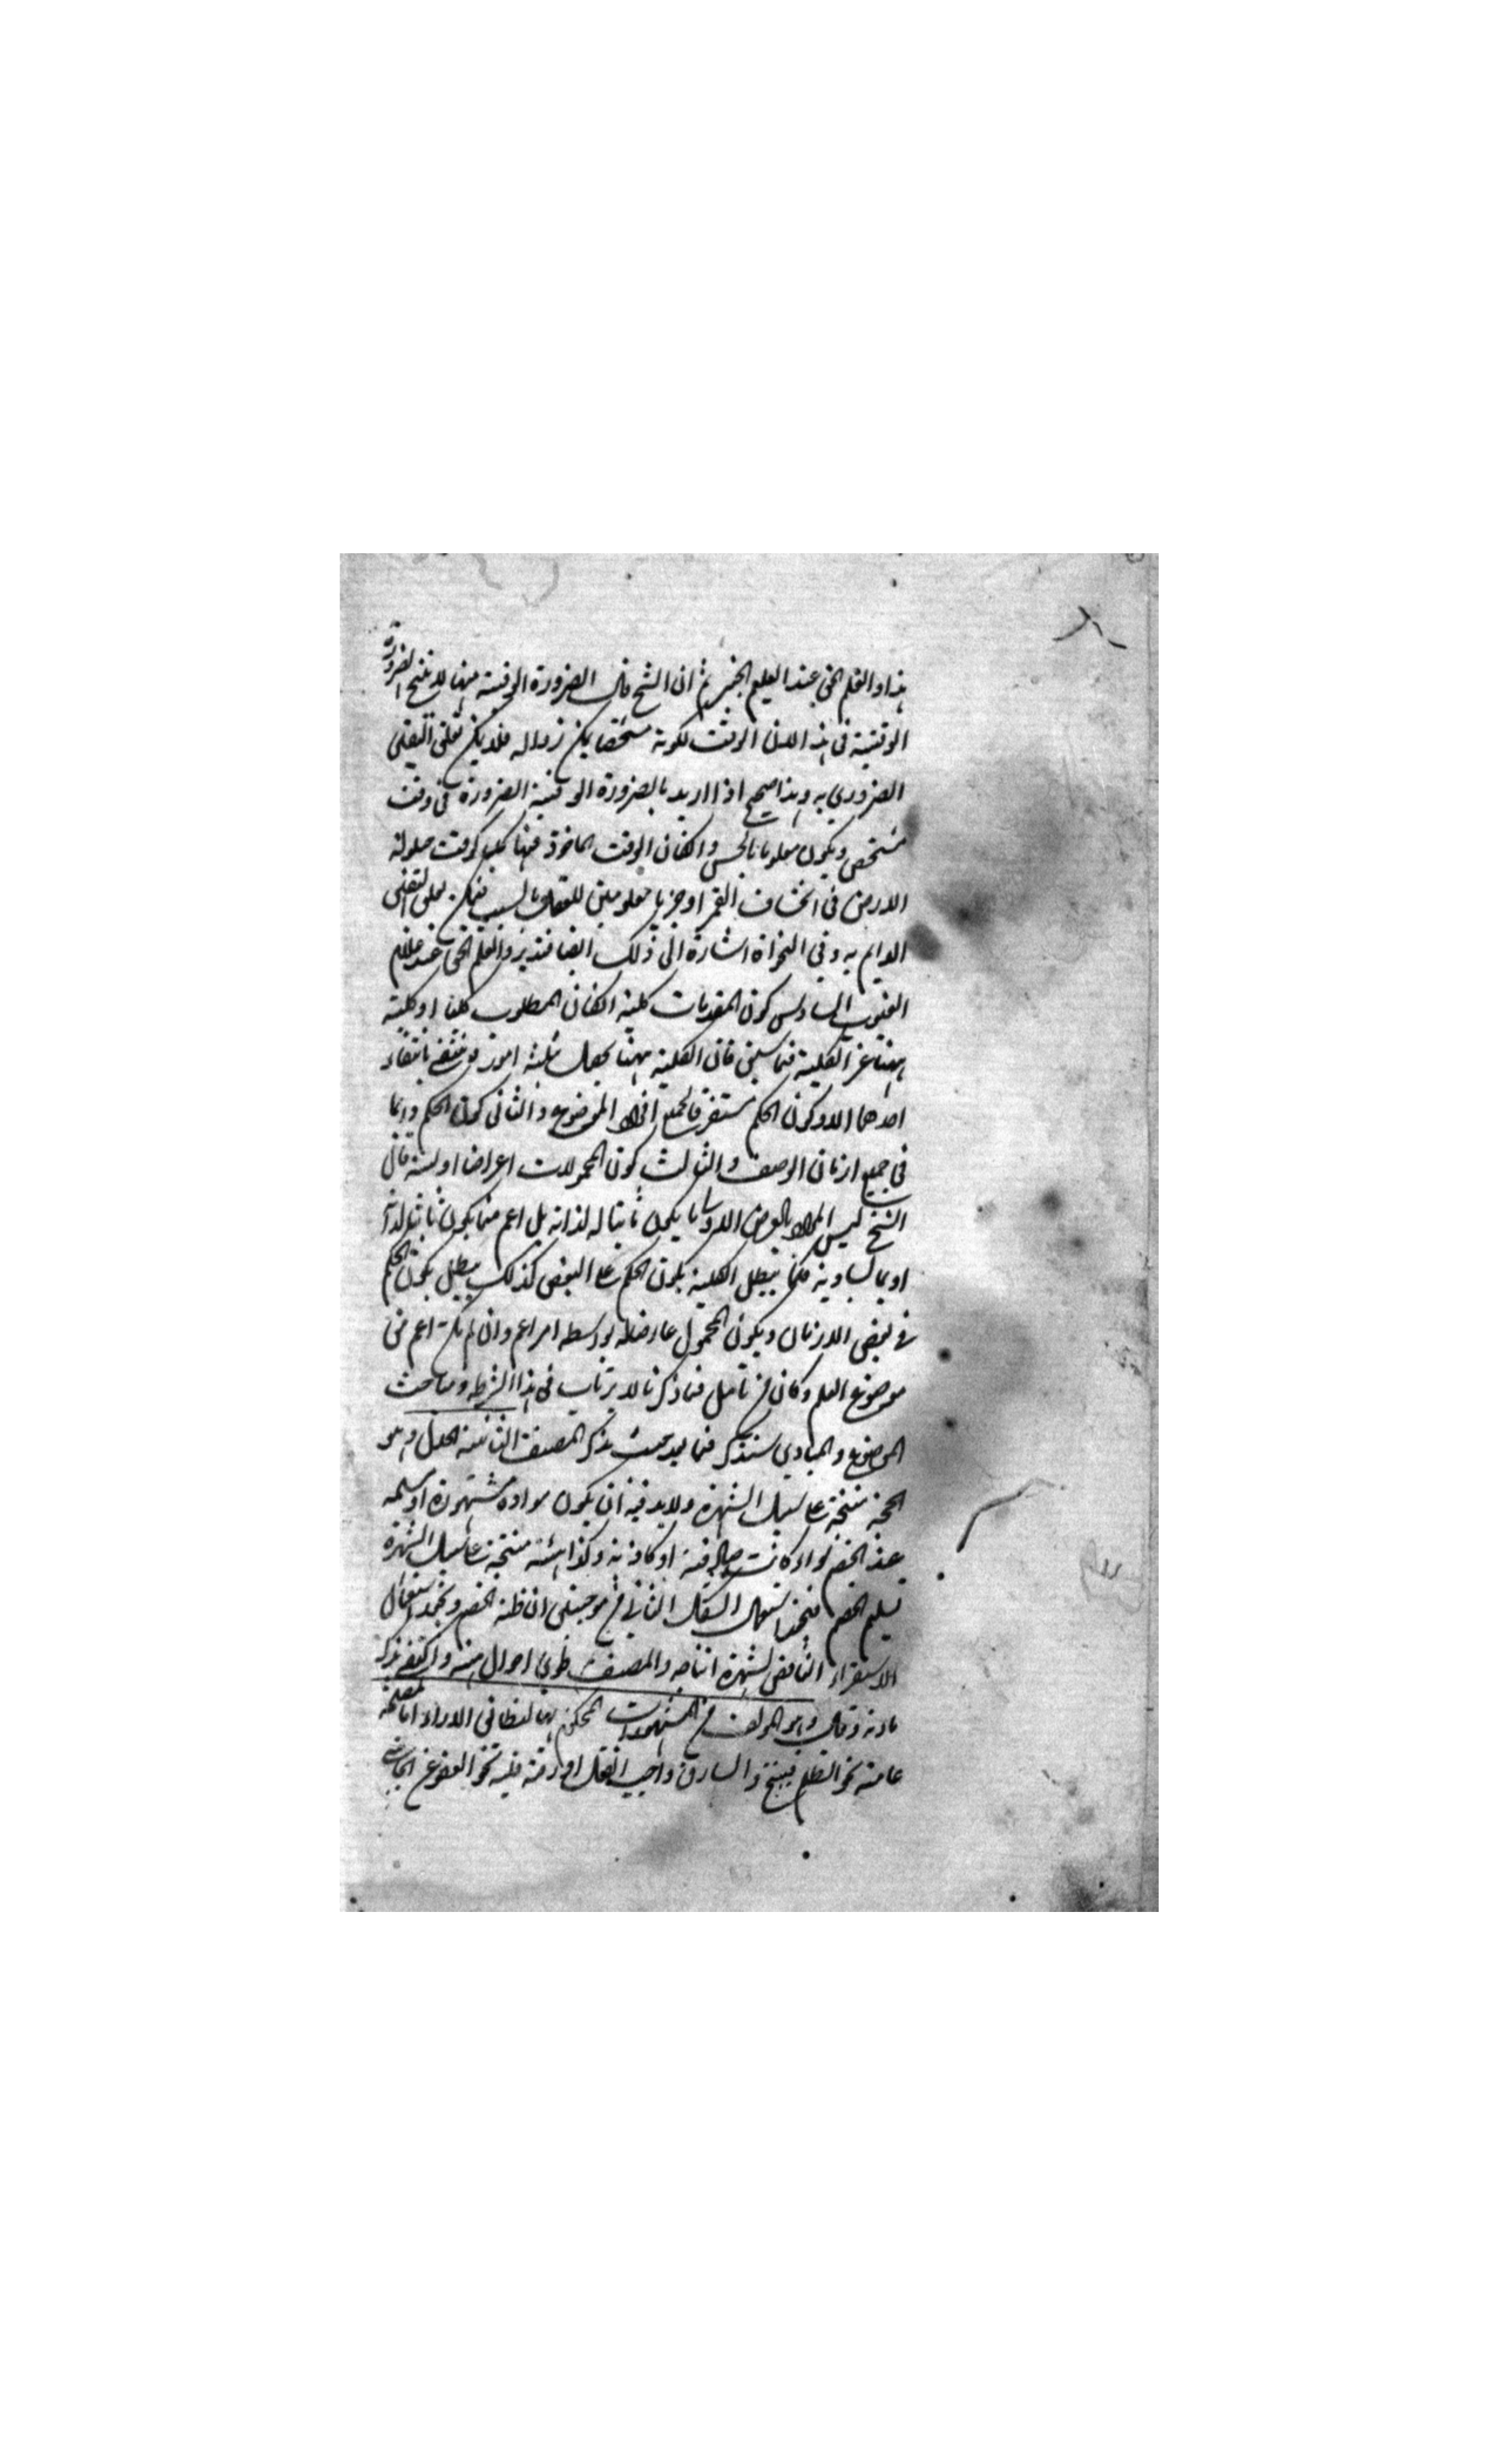 هذا والعلم الحق عند العليم الخبير ثم ان الشيخ قال الضرورة الوقتية ههنا لا ينتج الضرورة
الوقتية في هذه اللان الوقت لكونه مشخصا يمكن زواله فلا يمكن تعلق اليقين
الضروري به وهذا صحيح اذا اريد بالضرورة الوقتية الضرورة في وقت
مشخص ويكون معلوما بالحس والكان الوقت الماخوذ فيها كليا كوقت حيلولة
الارض في انخساف القمر او جزئيا معلومين للعقل بالسبب فيمكن تعلق اليقين
الدايم به وفي النجاة اشارة الى ذلك ايضا فتدبر والعلم الحق عند علام
الغيوب السادس كون المقدمات كلية الكان المطلوب كليا او كلية
ههنا غير الكلية فيما سبق فان الكلية ههنا بجعل ثلثة امور وينتفي بانتفاء
احدها الاو كون الحكم مستغرقا لجميع افراد الموضوع والثاني كون الحكم دايما
في جميع ازمان الوصف والثالث كون المحمولات اعراضا اولية قال
الشيخ ليس المراد بالعرض الاولى ما يكون ثابتا له لذاته بل اعم مما يكون ثابتا لذاته
او بما يساويه فكما يبطل الكلية بكون الحكم على البعض كذلك يبطل بكون الحكم
في بعض الازمان وبكون المحمول عارضا له بواسطة امر اعم وان لم يكن اعم من
موضوع العلم وكان من تامل فيما ذكرنا لا يرتاب في هذا الشرط ومباحث
الموضوع والمبادي ستذكر فيما بعد حيث يذكر المصنف الثانية الجدل وهو
الحجة منتجة على سبيل الشهرة ولا بد فيه ان يكون مواده مشهورة او مسلمة
عند الخصم سواء كانت صادقة او كاذبة وكذا هيئته منتجة على سبيل الشهرة
تسليم الخصم فيجوز استعمال الشكل الثاني من موجبتين ان ظنه الخصم ويجوز استعمال
الاستقراء الناقص لشهرة انتاجه والمصنف طوى احوال هيئته واكتفى بذكر
مادته وقال وهو المؤلف من المشهورات المحكوم بها لتطابق الاراء اما لمصلحة
عامة نحو الظلم قبيح والسارق واجب القتل او رقة قلبية نحو العفو عن الجاني